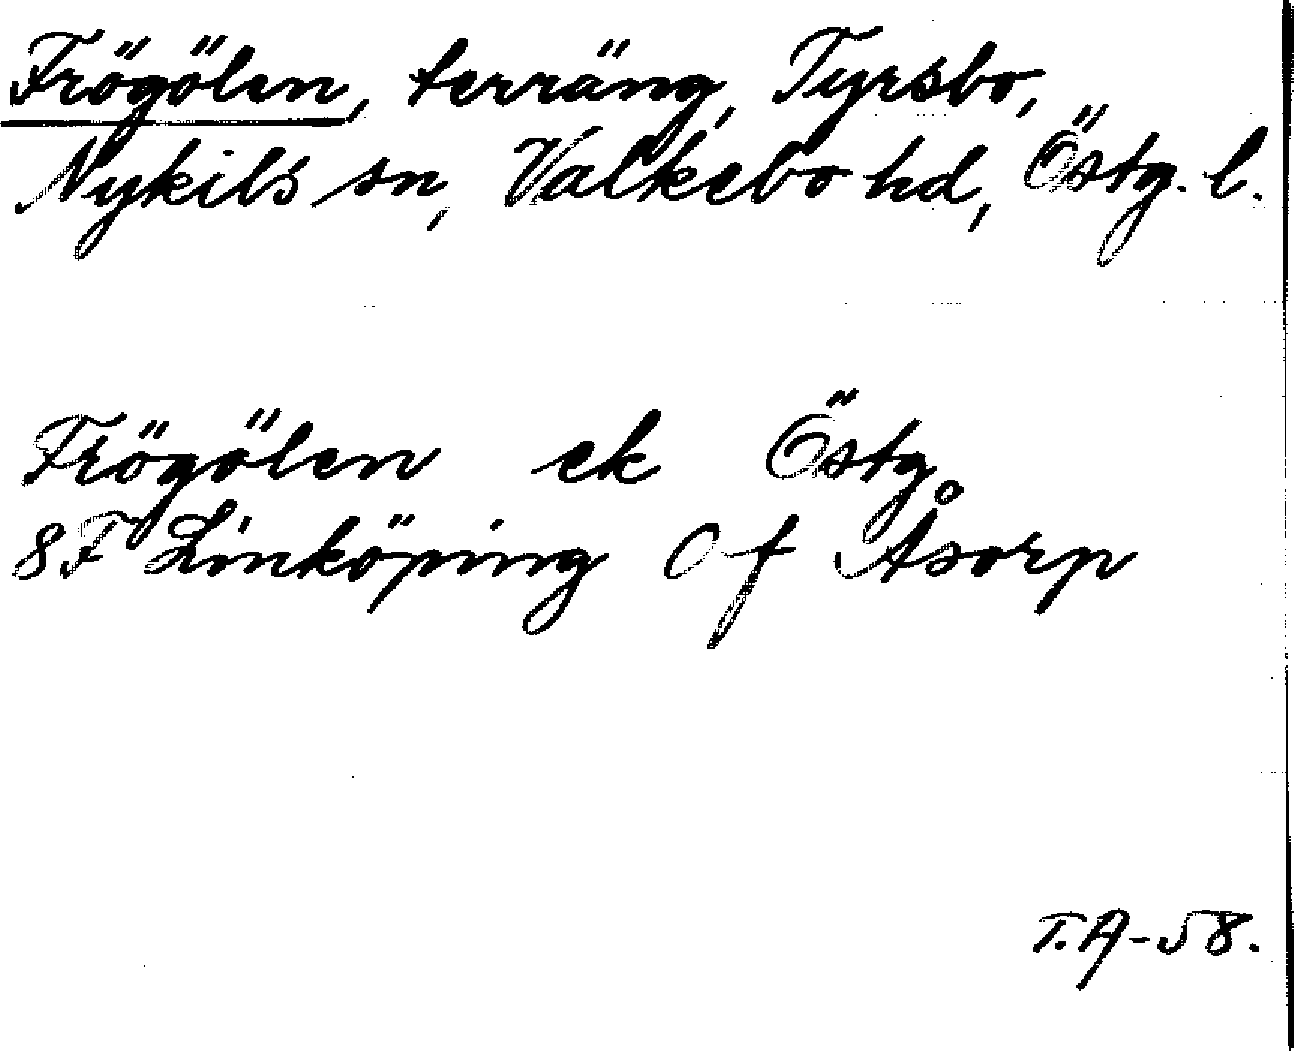 Frögölen, terräng, Tyrsbo,
Nykils sn, Valkebo hd, Östg. l.
Frögölen ek Östg
8F Linköping 0 f Åsorp
T.A-58.